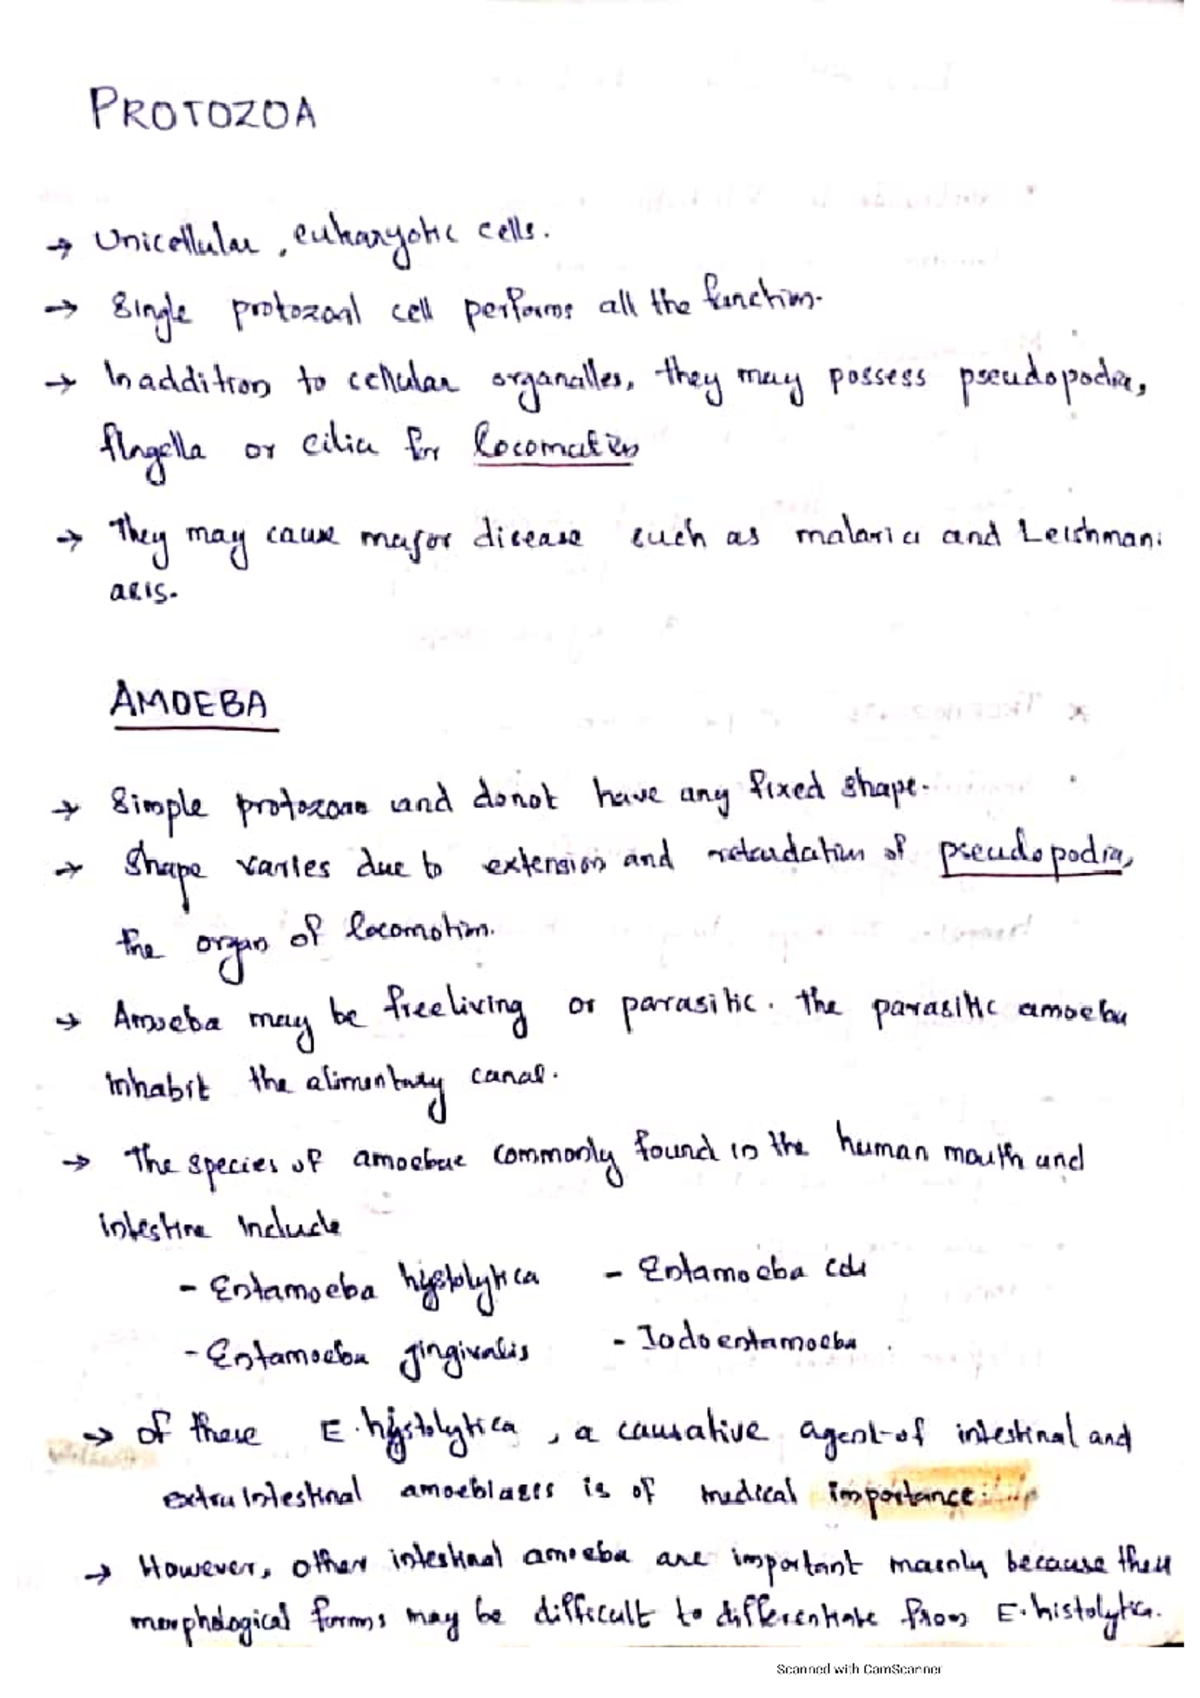 PROTOZOA
→ Unicellular, eukaryotic cells.
→ Single protozoal cell performs all the function.
→ In addition to cellular organelles, they may possess pseudopodia,
flagella or cilia for locomotion
→ They may cause major disease such as malaria and Leishmani
asis.
AMOEBA
→ Simple protozoans and donot have any fixed shape.
→ Shape varies due to extension and of pseudopodia,
the organ of locomotion.
→ Amoeba may be freeliving or parasitic. The parasitic amoeba
inhabit the alimentary canal.
→ The species of amoebae commonly found in the human mouth and
intestine include
- Entamoeba hystolytica - Entamoeba coli
- Entamoeba gingivalis - Iodoentamoeba.
→ Of these E. hystolytica, a causative agent of intestinal and
extraintestinal amoebiases is of medical importance.
→ However, other intestinal amoeba are important mainly because their
morphological forms may be difficult to differentiate from E. histolytica.
Scanned with CamScanner